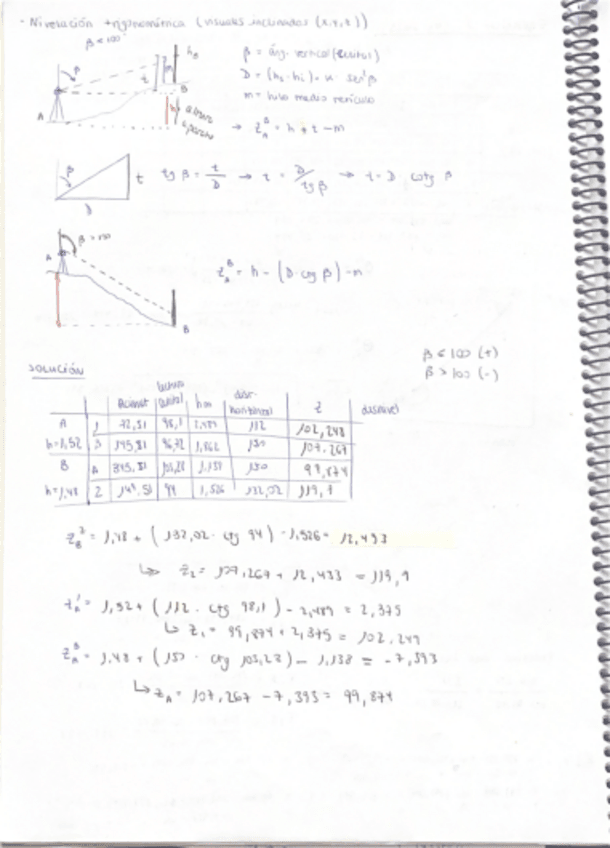 · Nivelación trigonométrica (visuales inclinadas (x,y,z))
β < 100
β = áng. vertical (
D = (hs - hi) · k · sen²β
m = hilo medio retículo
→ Z_A^B = h + t - m
tg β = t/D → t = D/tg β → t = D · cotg β
β > 100
Z_A^B = h - (D · cotg β) - m
β < 100 (+)
β > 100 (-)
SOLUCIÓN
Acimut lectura cenital hm dist. horizontal Z desnivel
A 1 72,51 98,1 2,489 112 102,249
h=1,52 B 145,81 96,72 1,862 150 107,267
B A 345,81 103,28 1,138 150 99,874
h=1,48 2 149,51 94 1,526 132,02 119,7
Z_B^2 = 1,48 + (132,02 · ctg 94) - 1,526 = 12,433
↳ Z_2 = 107,267 + 12,433 = 119,7
Z_A^1 = 1,52 + (112 · ctg 98,1) - 2,489 = 2,375
↳ Z_1 = 99,874 + 2,375 = 102,249
Z_A^B = 1,48 + (150 · ctg 103,28) - 1,138 = -7,393
↳ Z_A = 107,267 - 7,393 = 99,874